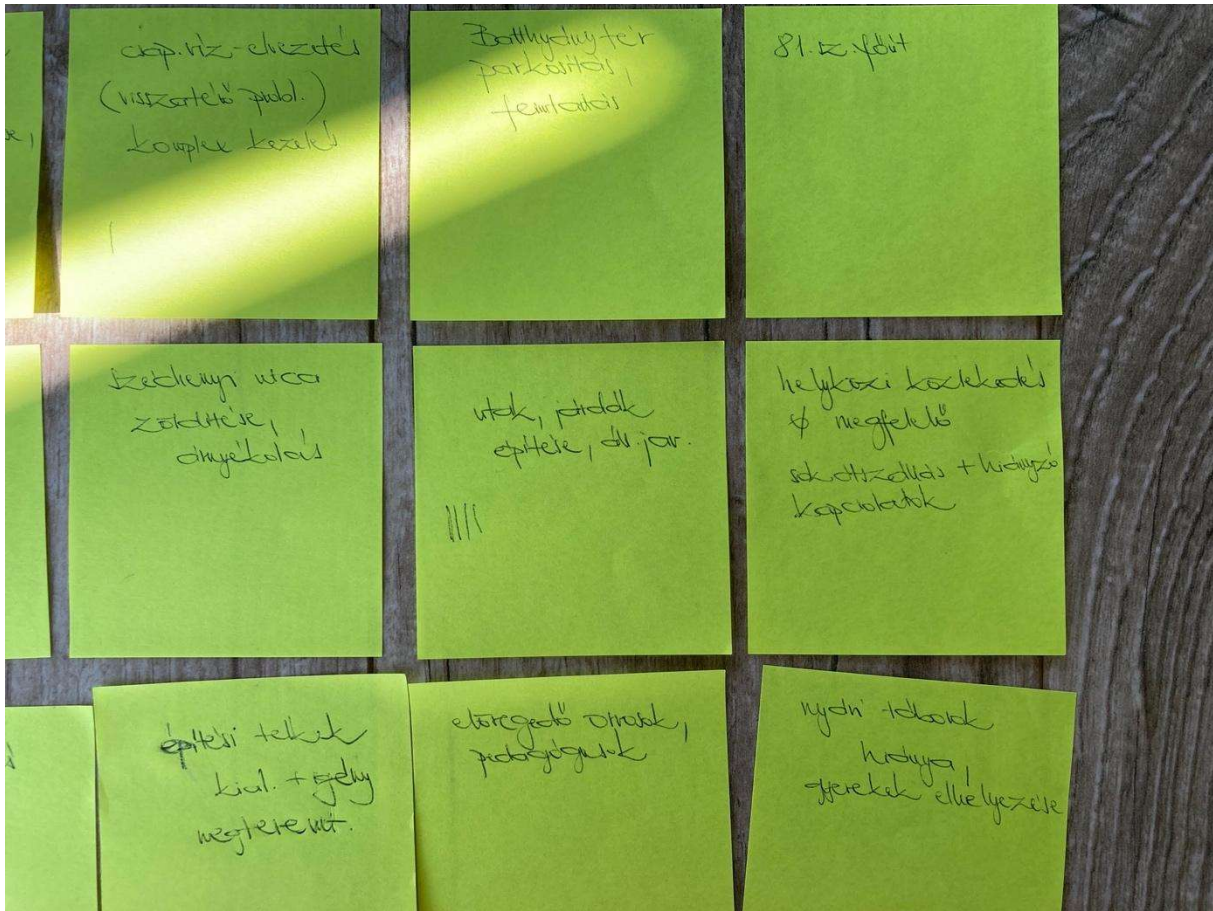 csap.víz-elvezetés
(visszatérő probl.)
komplex kezelés
Batthyány tér
parkosítás,
fenntartás
81. sz. főút
Széchenyi utca
zöldítése,
árnyékolás
utak, járdák
építése, áll. jav.
||||
helyközi közlekedés
∅ megfelelő
sok átszállás + hiányzó
kapcsolatok
építési telkek
kial. + igény
megteremt.
elöregedő orvosok,
pedagógusok
nyári táborok
hiánya,
gyerekek elhelyezése